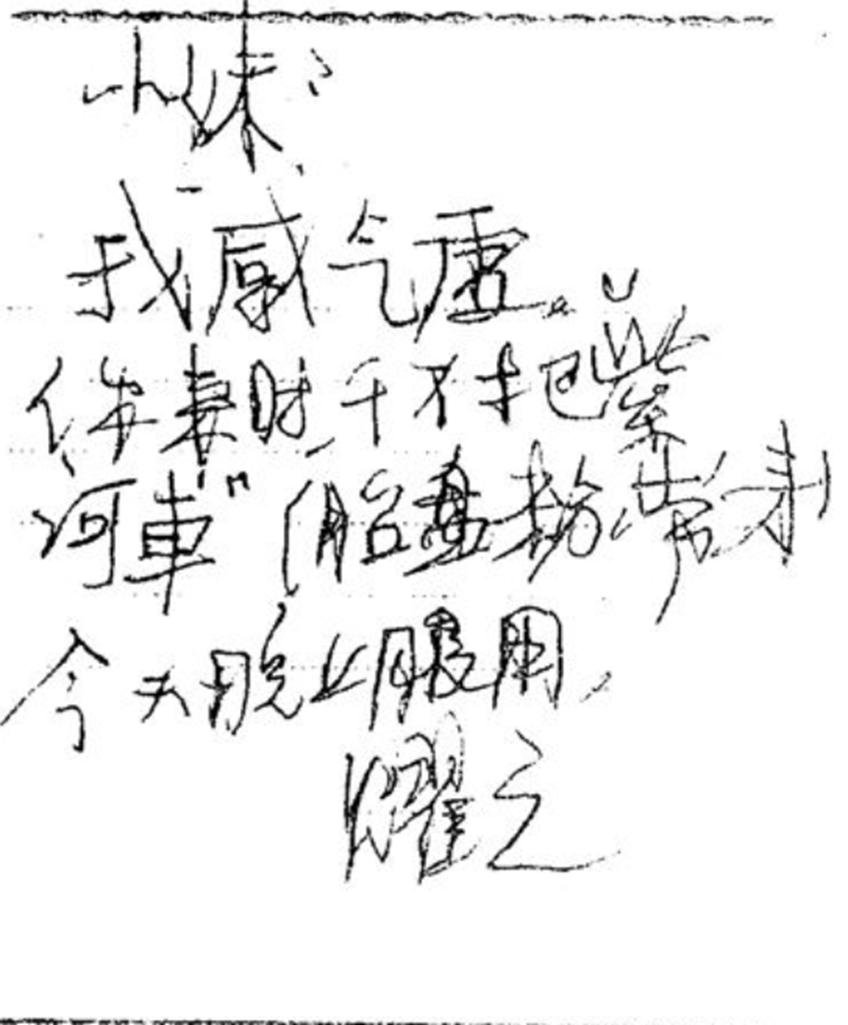 小妹:
我感气虚.
你来时,千万把“紫
河車”(胎盘粉)带来
今天晚上服用.
耀之